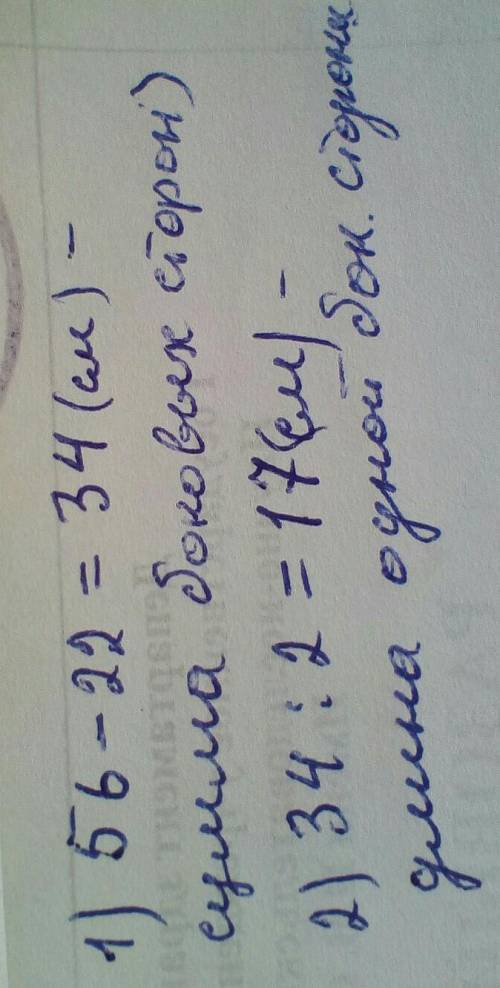 1) 56 - 22 = 34 (см) -
сумма боковых сторон)
2) 34 : 2 = 17 (см) -
длина одной бок. стороны